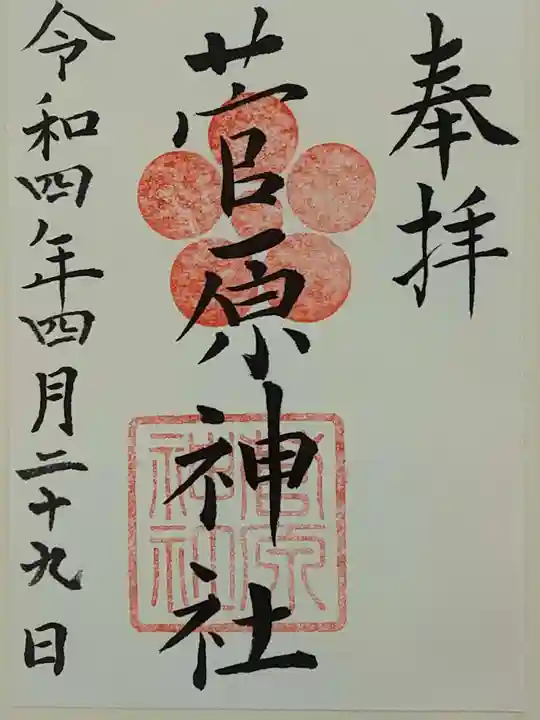 奉拝
菅原神社
菅原
神社
令和四年四月二十九日